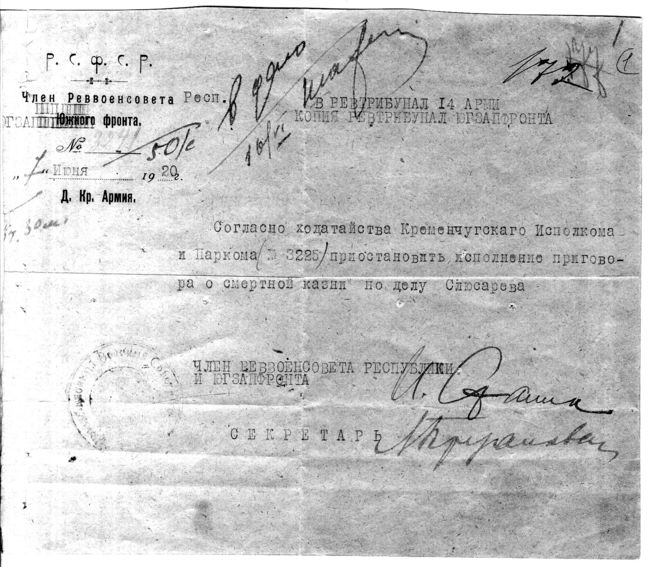 Р. С. Ф. С. Р.
Член Реввоенсовета Респ.
Южного фронта.
№ 50/с
„ 7 " Июня 1920 г.
Д. Кр. Армия.
В дело
16/VI
172
В РЕВТРИБУНАЛ 14 АРМИ
КОПИЯ РЕВТРИБУНАЛ ЮГЗАПФРОНТА
Согласно ходатайства Кременчугскаго Исполкома
и Паркома (№ 3225) приостановить исполнение пригово-
ра о смертной казни по делу Слюсарева
ЧЛЕН РЕВВОЕНСОВЕТА РЕСПУБЛИКИ
И ЮГЗАПФРОНТА
И. Сталин
СЕКРЕТАРЬ